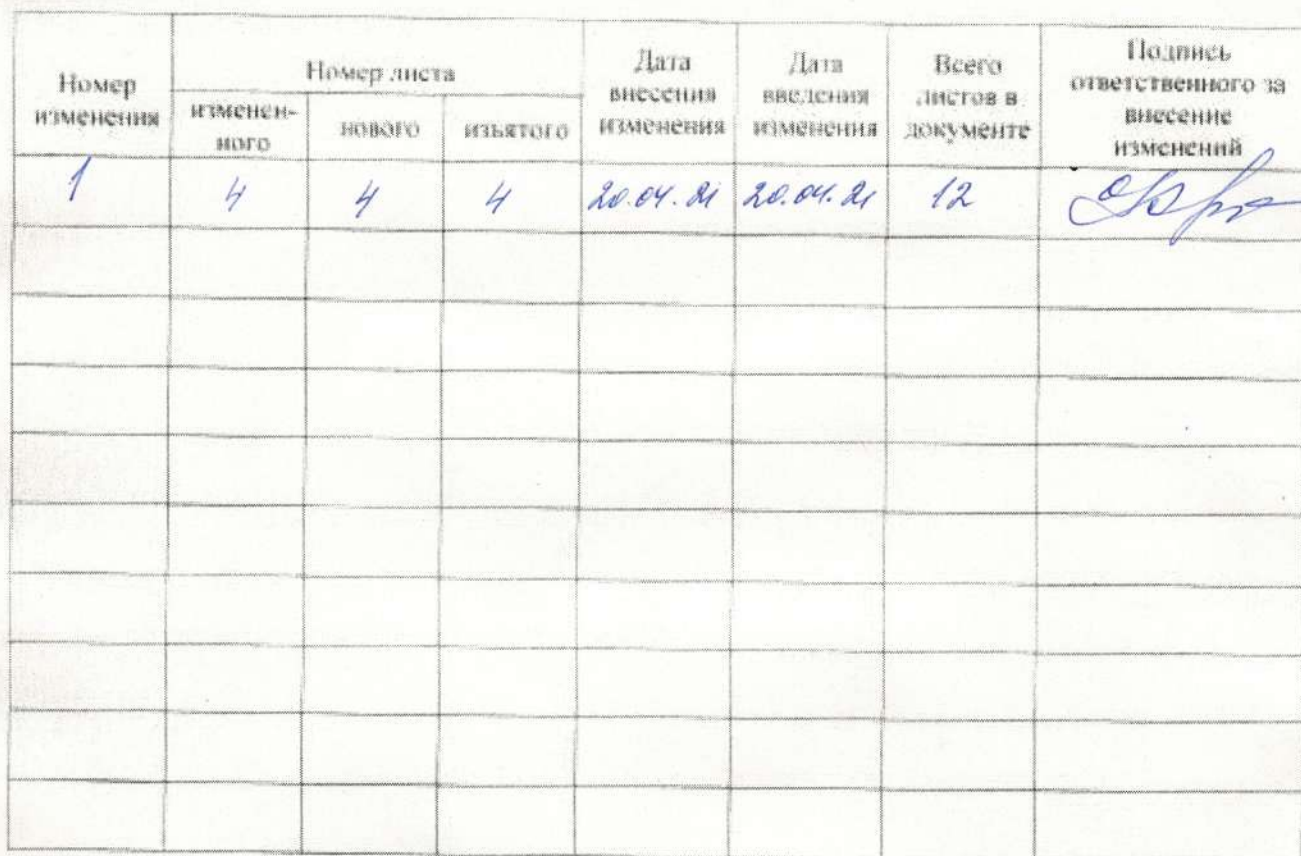 Номер
изменения
Номер листа
изменен-
ного
нового
изъятого
Дата
внесения
изменения
Дата
введения
изменения
Всего
листов в
документе
Подпись
ответственного за
внесение
изменений
1 4 4 4 20.04.21 20.04.21 12